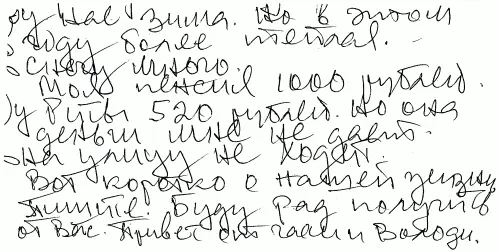 у нас зима. Но в этом
году более теплая.
Снегу много.
Моя пенсия 1000 рублей.
у Руты 520 рублей. Но она
деньги мне не дает.
На улицу не ходят.
Вот коротко о нашей жизни
Пишите. Буду рад получить
от Вас. Привет от Гали и Володи.